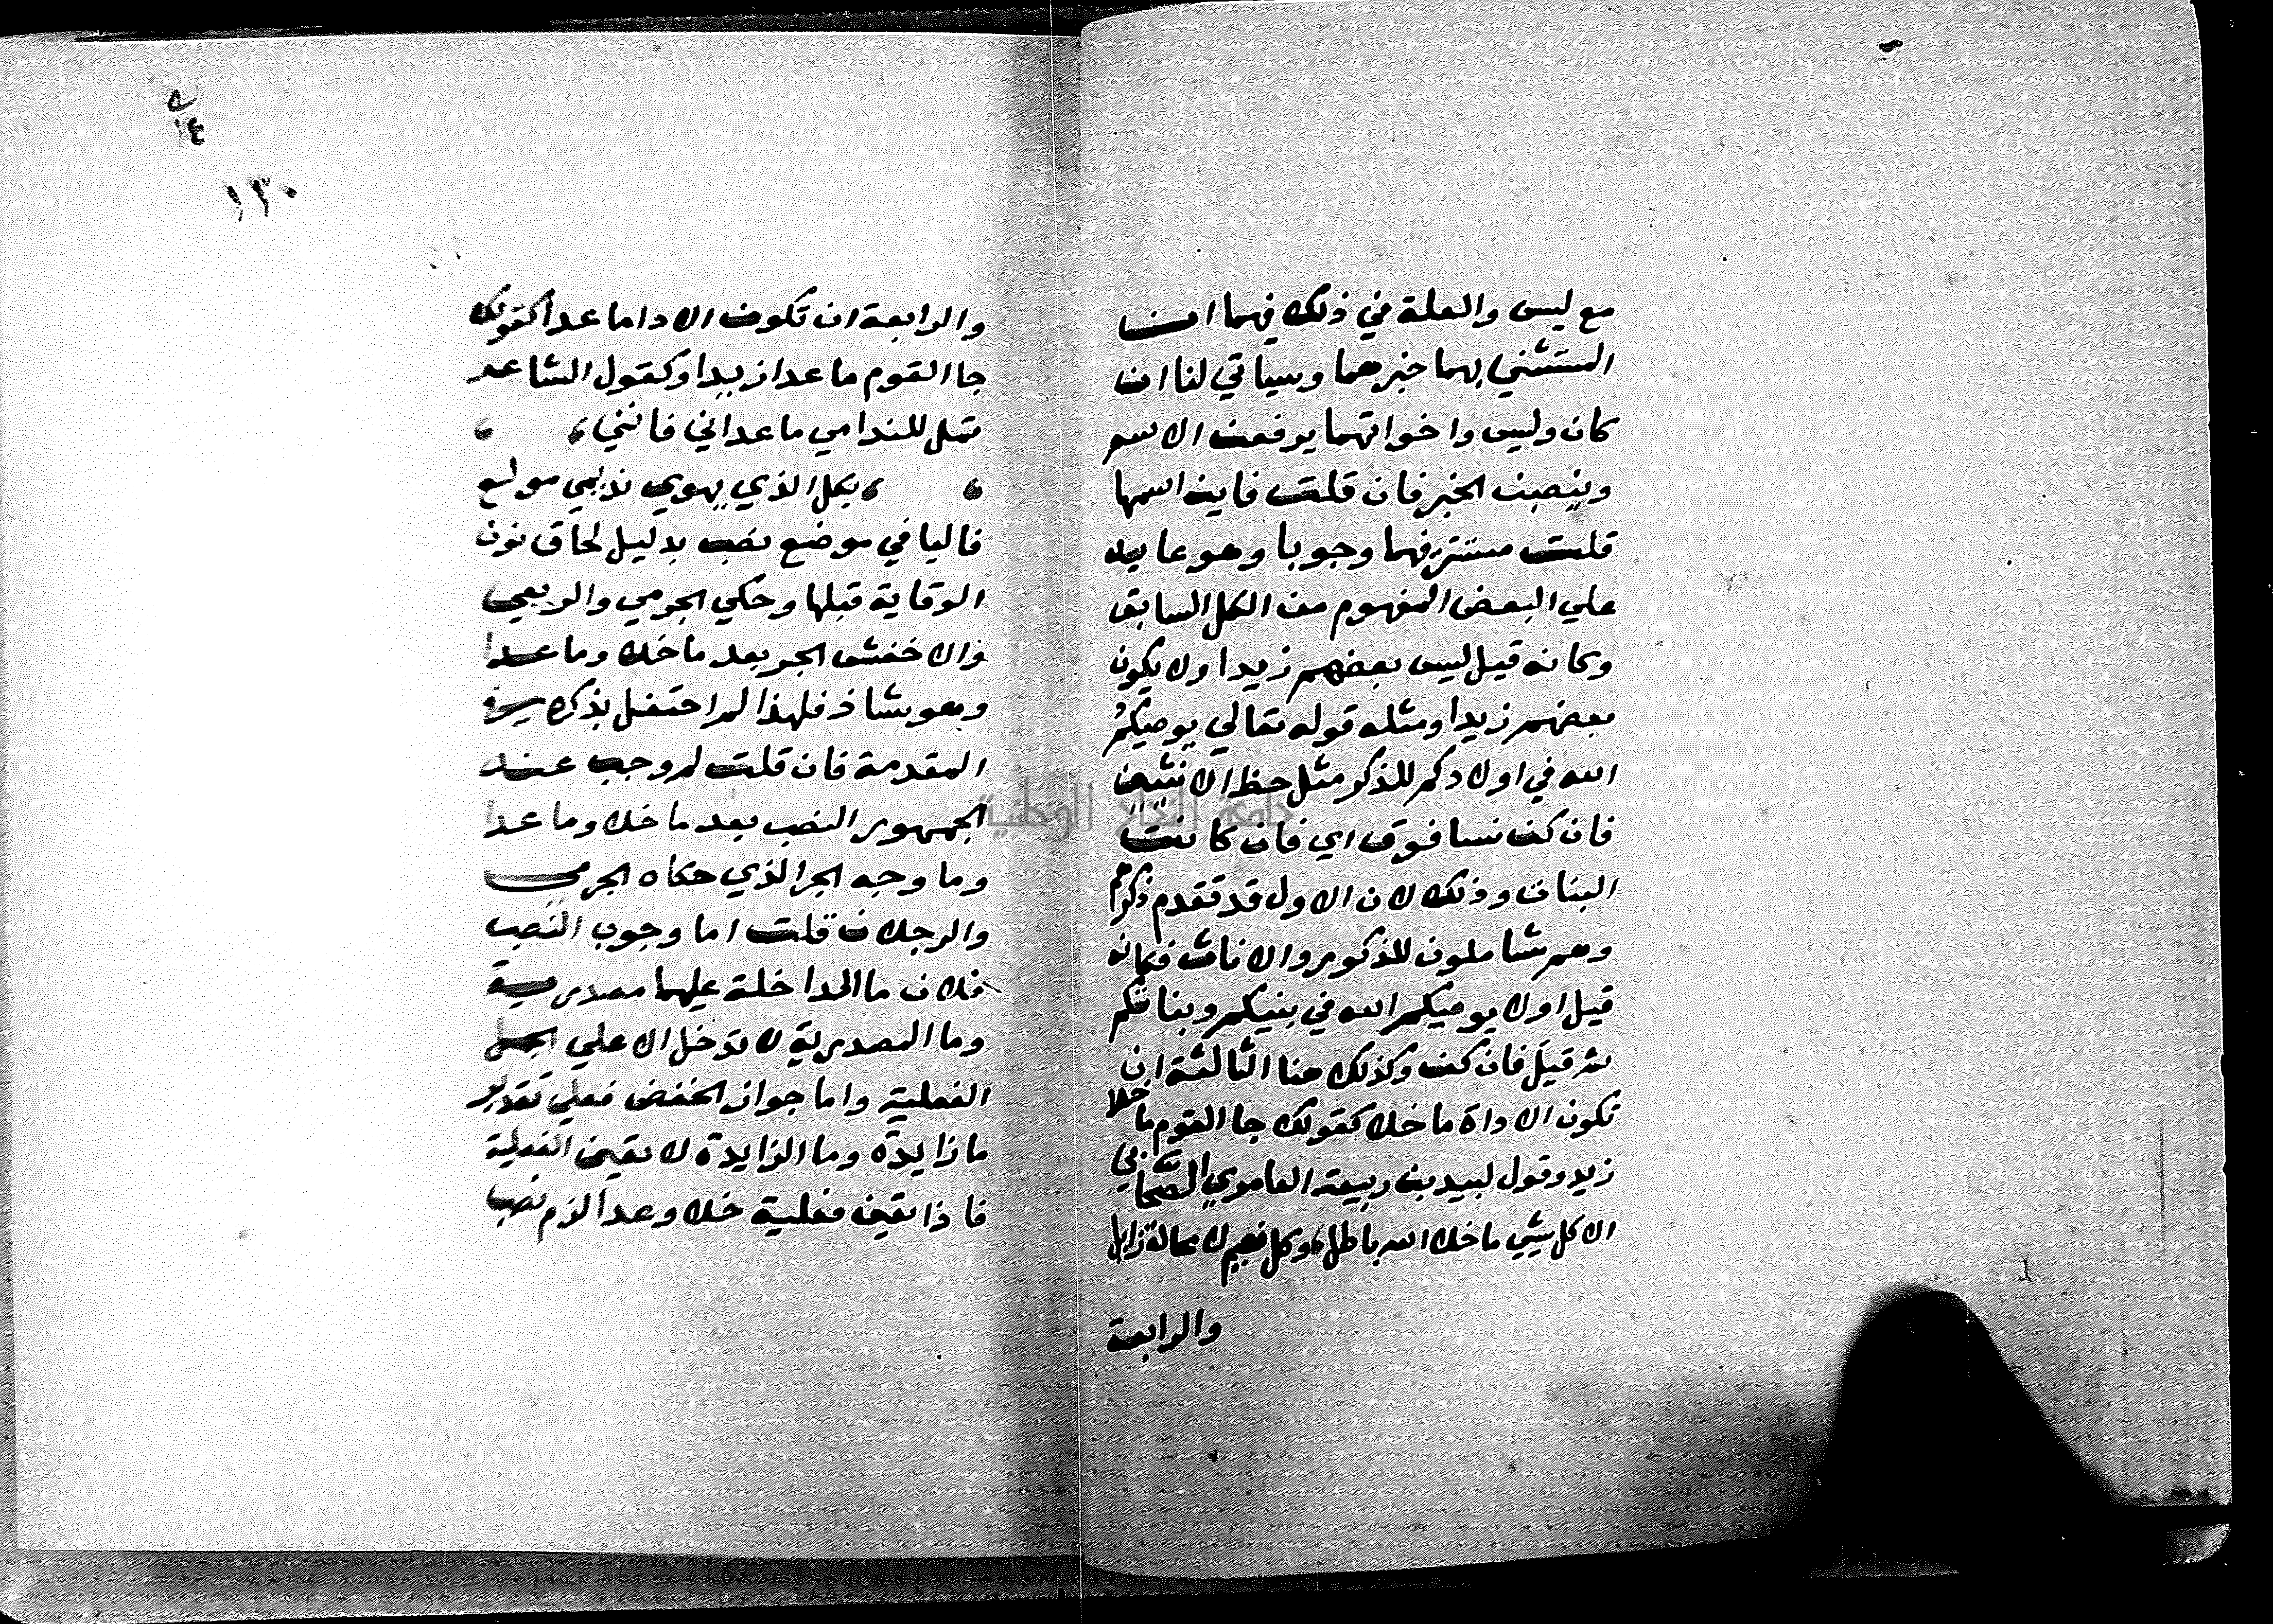 مع ليس والعلة في ذلك فيهما ان
المستثني بهما خبرهما وسياتي لنا ان
كان وليس واخواتهما يرفعن الاسم
وينصبن الخبر فان قلت فاين اسمها
قلت مستتر فيهما وجوبا وهو عايد
علي البعض المفهوم من الكل السابق
وكانه قيل ليس بعضهم زيدا ولا يكون
بعضهم زيدا ومثله قوله تعالي يوصيكم
الله في اولادكم للذكر مثل حظ الانثيين
فان كن نسا فوق اي فان كانت
البنات وذلك لان الاولاد قد تقدم ذكرهم
وهم شاملون للذكور والاناث فكانه
قيل اولا يوصيكم الله في بنيكم وبناتكم
ثم قيل فان كن وكذلك هنا الثالثة ان
تكون الاداة ما خلا كقولك جا القوم ما خلا
زيد وقول لبيد بن ربيعة العامري الصحابي
الا كل شيي ما خلا الله باطل وكل نعيم لا محالة زايل
والرابعة
١٤
١٣٠
والرابعة ان تكون الاداما عدا كقولك
جا القوم ما عدا زيدا وكقول الشاعر
تمل للندامي ما عداني فانني
بكل الذي يهوي نديمي مولع
فاليا في موضع نصب بدليل لحاق نون
الوقاية قبلها وحكي الجرمي والربعي
والاخفش الجر بعد ما خلا وما عدا
وهو شاذ فلهذا لم احتفل بذكره في
المقدمة فان قلت لم وجب عند
الجمهور النصب بعد ما خلا وما عدا
وما وجه الجر الذي حكاه الجرمي
والرجلان قلت اما وجوب النصب
فلان ما الداخلة عليهما مصدرية
وما المصدرية لا تدخل الا علي الجمل
الفعلية واما جواز الخفض فعلي تقدير
ما زايدة وما الزايدة لا تعين الفعلية
فاذا تعين فعلية خلا وعدا لزم نصب
جامعة النجاح الوطنية